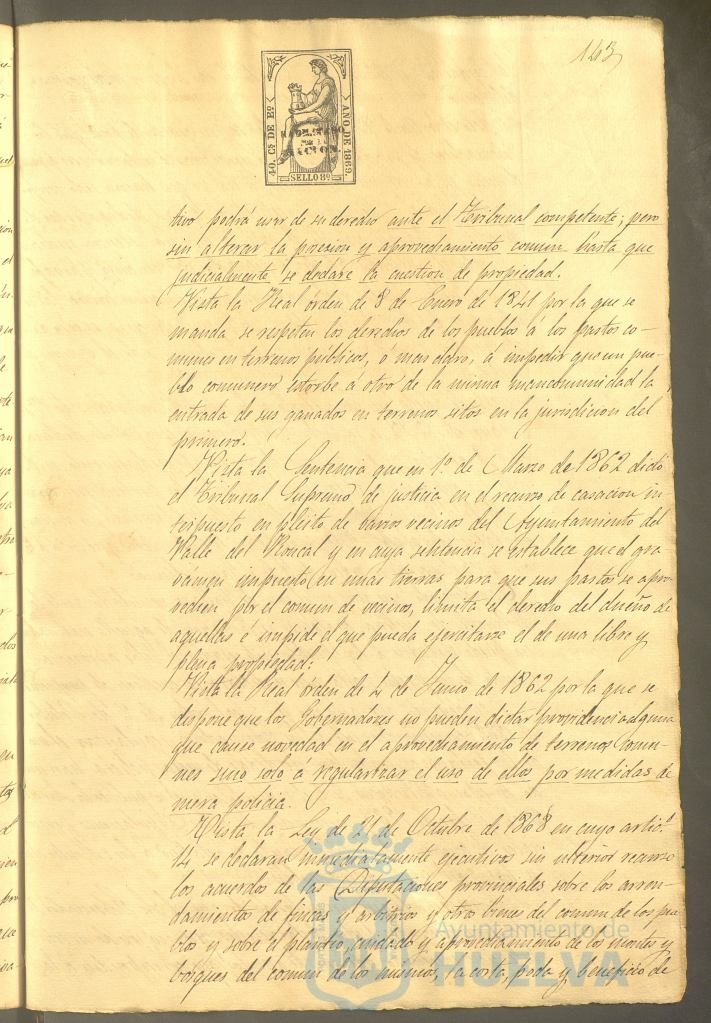 143
40. Cs DE Eo
AÑO DE 1869.
HABILITADO
POR LA
NACION.
SELLO 8º
tivo podrá usar de su derecho ante el Tribunal competente; pero
sin alterar la posesion y aprovechamiento comun hasta que
judicialmente se declare la cuestion de propiedad.
Vista la Real órden de 8 de Enero de 1841 por la que se
manda se respeten los derechos de los pueblos á los pastos co-
munes en terrenos públicos, ó mas claro, á impedir que un pue-
blo comunero estorbe á otro de la misma mancomunidad la
entrada de sus ganados en terrenos sitos en la jurisdicion del
primero.
Vista la Sentencia que en 1º de Marzo de 1862 dictó
el Tribunal Supremo de justicia en el recurso de casacion in-
terpuesto en pleito de varios vecinos del Ayuntamiento del
Valle del Roncal y en cuya sentencia se establece que el gra-
vamen impuesto en unas tierras para que sus pastos se apro-
vechen por el comun de vecinos, limita el derecho del dueño de
aquellas é impide el que pueda ejercitarse el de una libre y
plena propiedad:
Vista la Real órden de 4 de Junio de 1862 por la que se
dispone que los Gobernadores no pueden dictar providencia alguna
que cause novedad en el aprovechamiento de terrenos comu-
nes sino solo á regularizar el uso de ellos por medidas de
mera policia.
Vista la Ley de 21 de Octubre de 1868 en cuyo artic.º
14 se declaran inmediatamente ejecutivos sin ulterior recurso
los acuerdos de las Diputaciones provinciales sobre los arren-
damientos de fincas y arbitrios y otros bienes del comun de los pue-
blos y sobre el plantio, cuidado y aprovechamiento de los montes y
bosques del comun de los mismos, la corta, poda y beneficio de
Ayuntamiento de
HUELVA